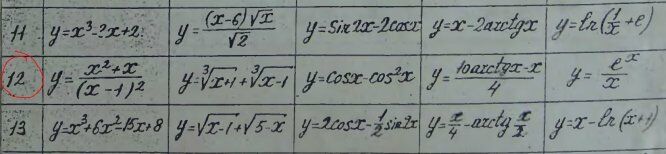 11 y=x³-?x+2 y=(x-6)√x/√2 y=Sin2x-2cosx y=x-2arctgx y=ln(1/x+e)
12 y=x²+x/(x-1)² y=³√x+1+³√x-1 y=cosx-cos²x y=10arctgx-x/4 y=eˣ/x
13 y=x³+6x²-15x+8 y=√x-1+√5-x y=2cosx-1/2sin2x y=x/4-arctg x/2 y=x-ln(x+1)